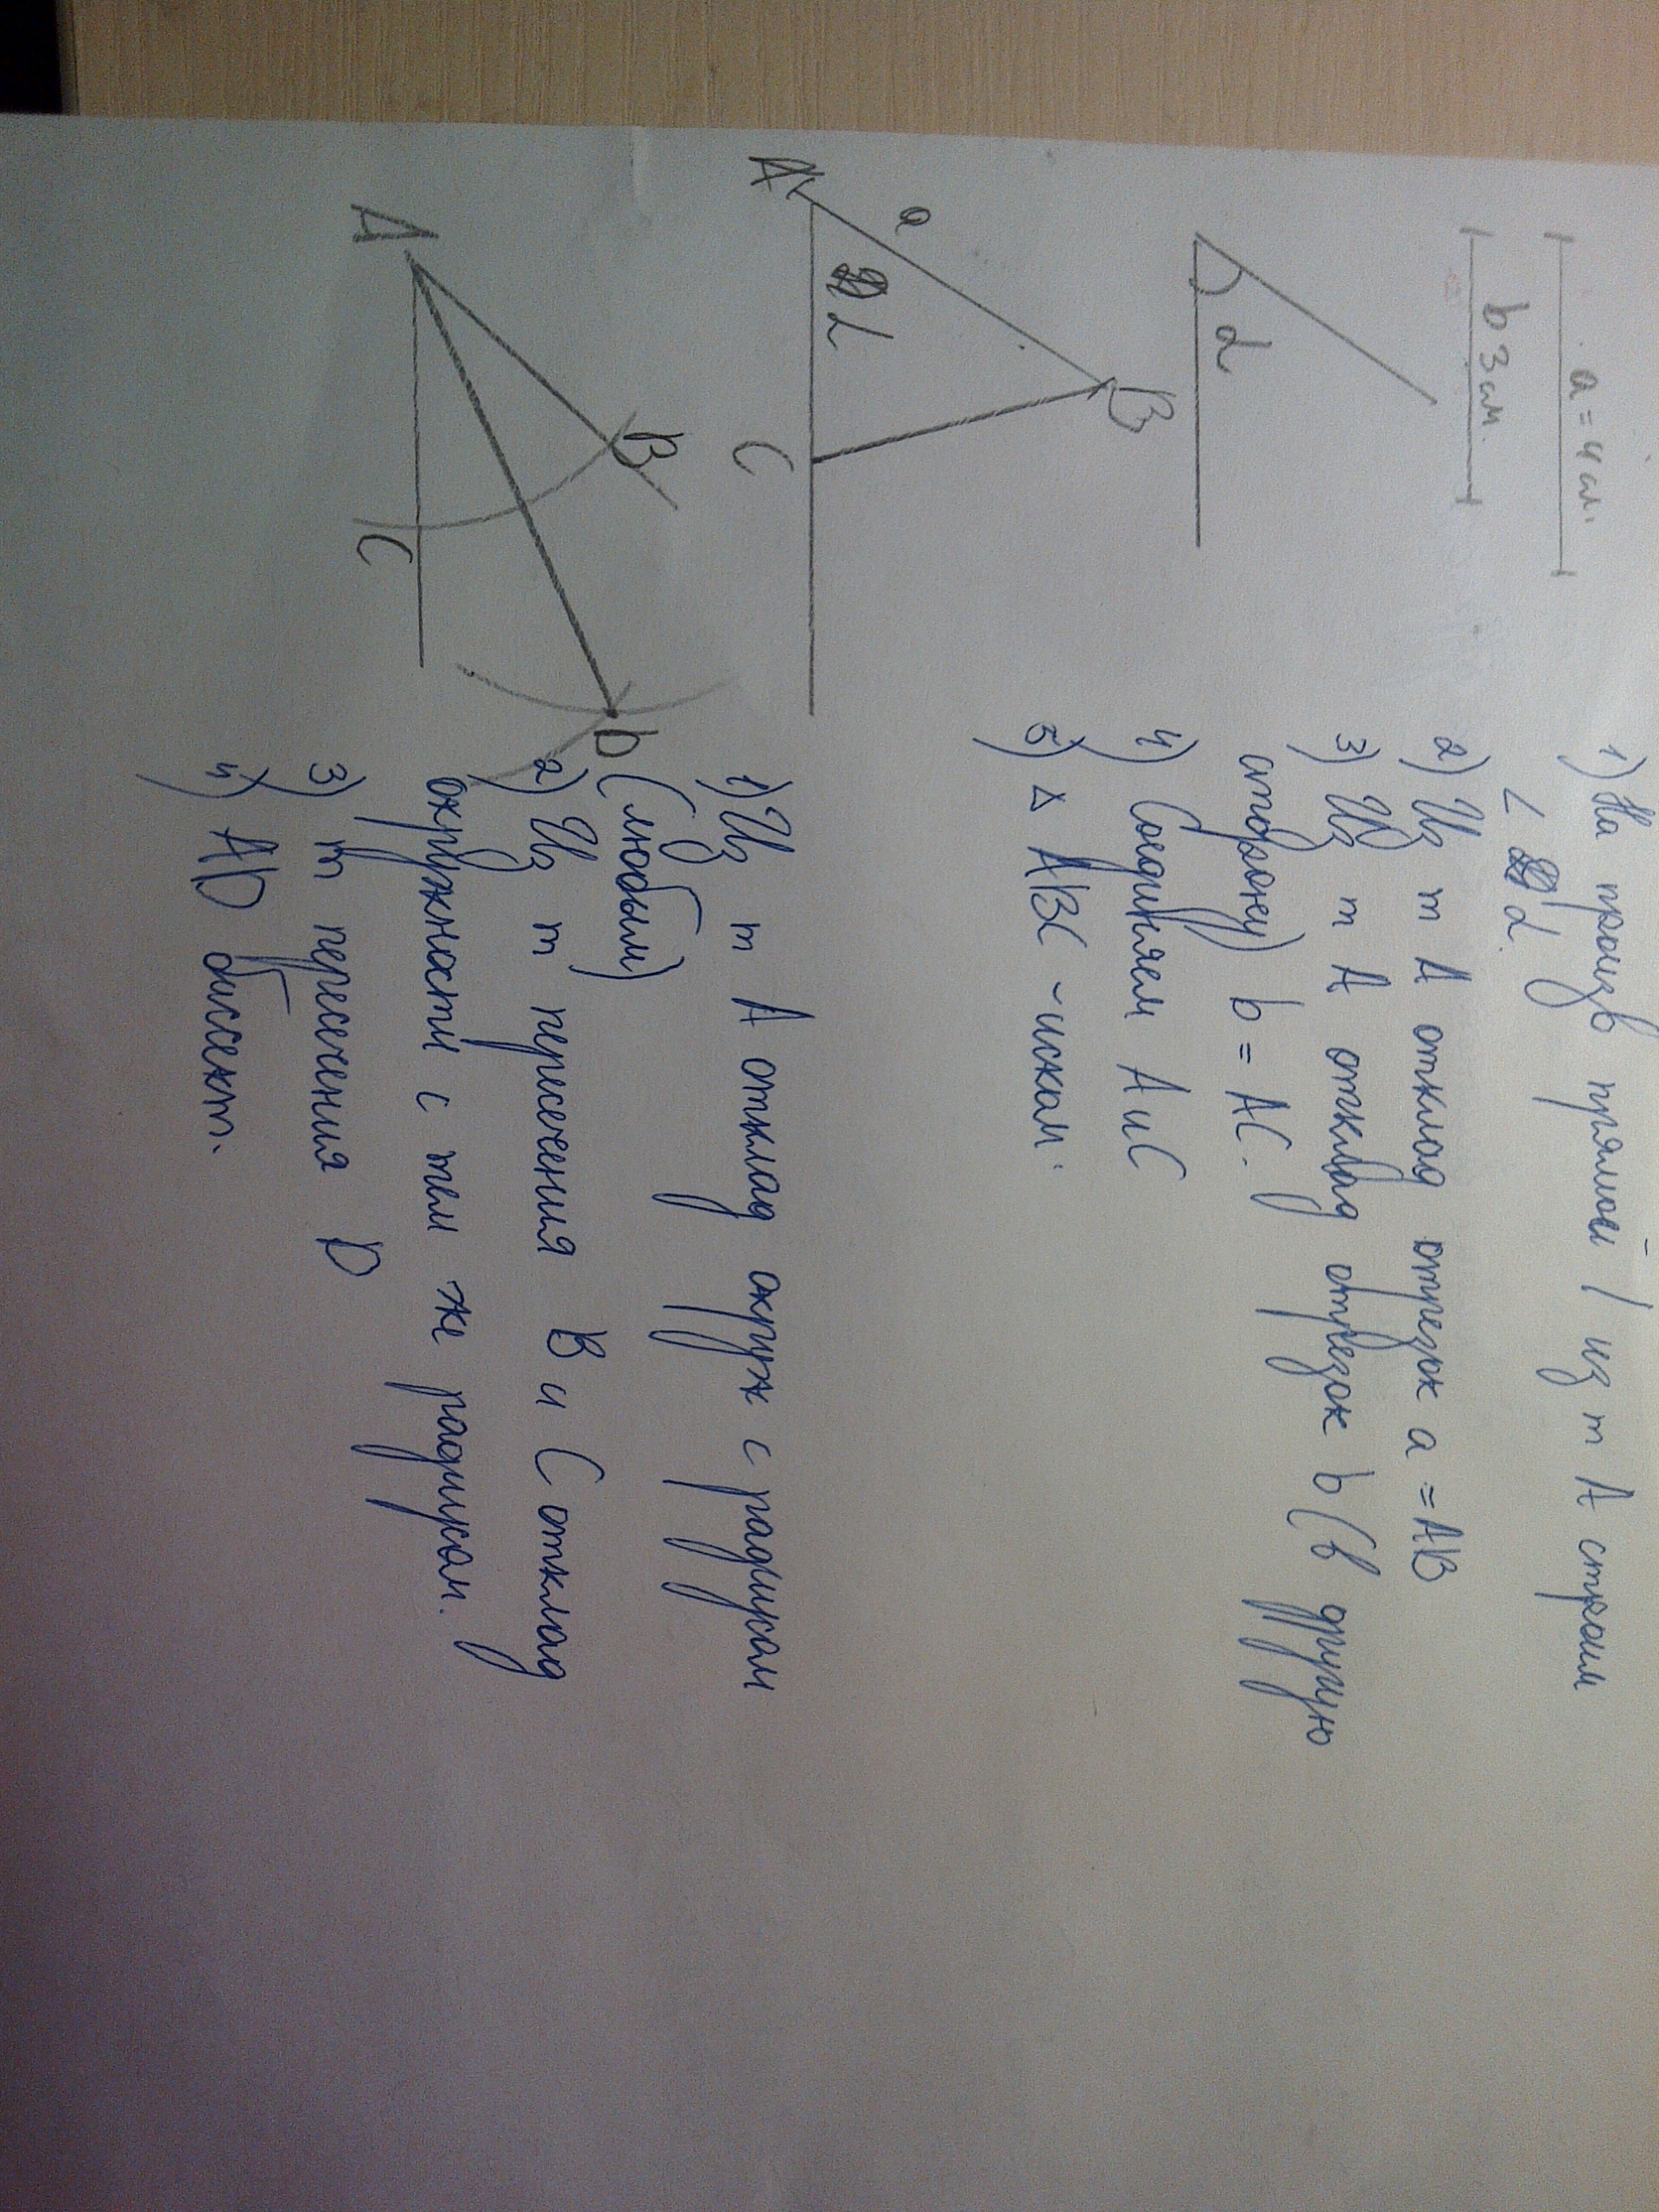 a = 4 см.
b 3 см.
α
A
a
B
α
C
1) На произв прямой / из т A строим
∠ α.
2) Из т A отклад отрезок a = AB
3) Из т A отклад отрезок b (в другую
сторону) b = AC.
4) Соединяем A и C
5) △ ABC - иском.
A
B
C
D
1) Из т A отклад окруж с радиусом
(любым)
2) Из т пересечения B и C отклад
окружности с тем же радиусом.
3) т пересечения D
4) AD биссект.